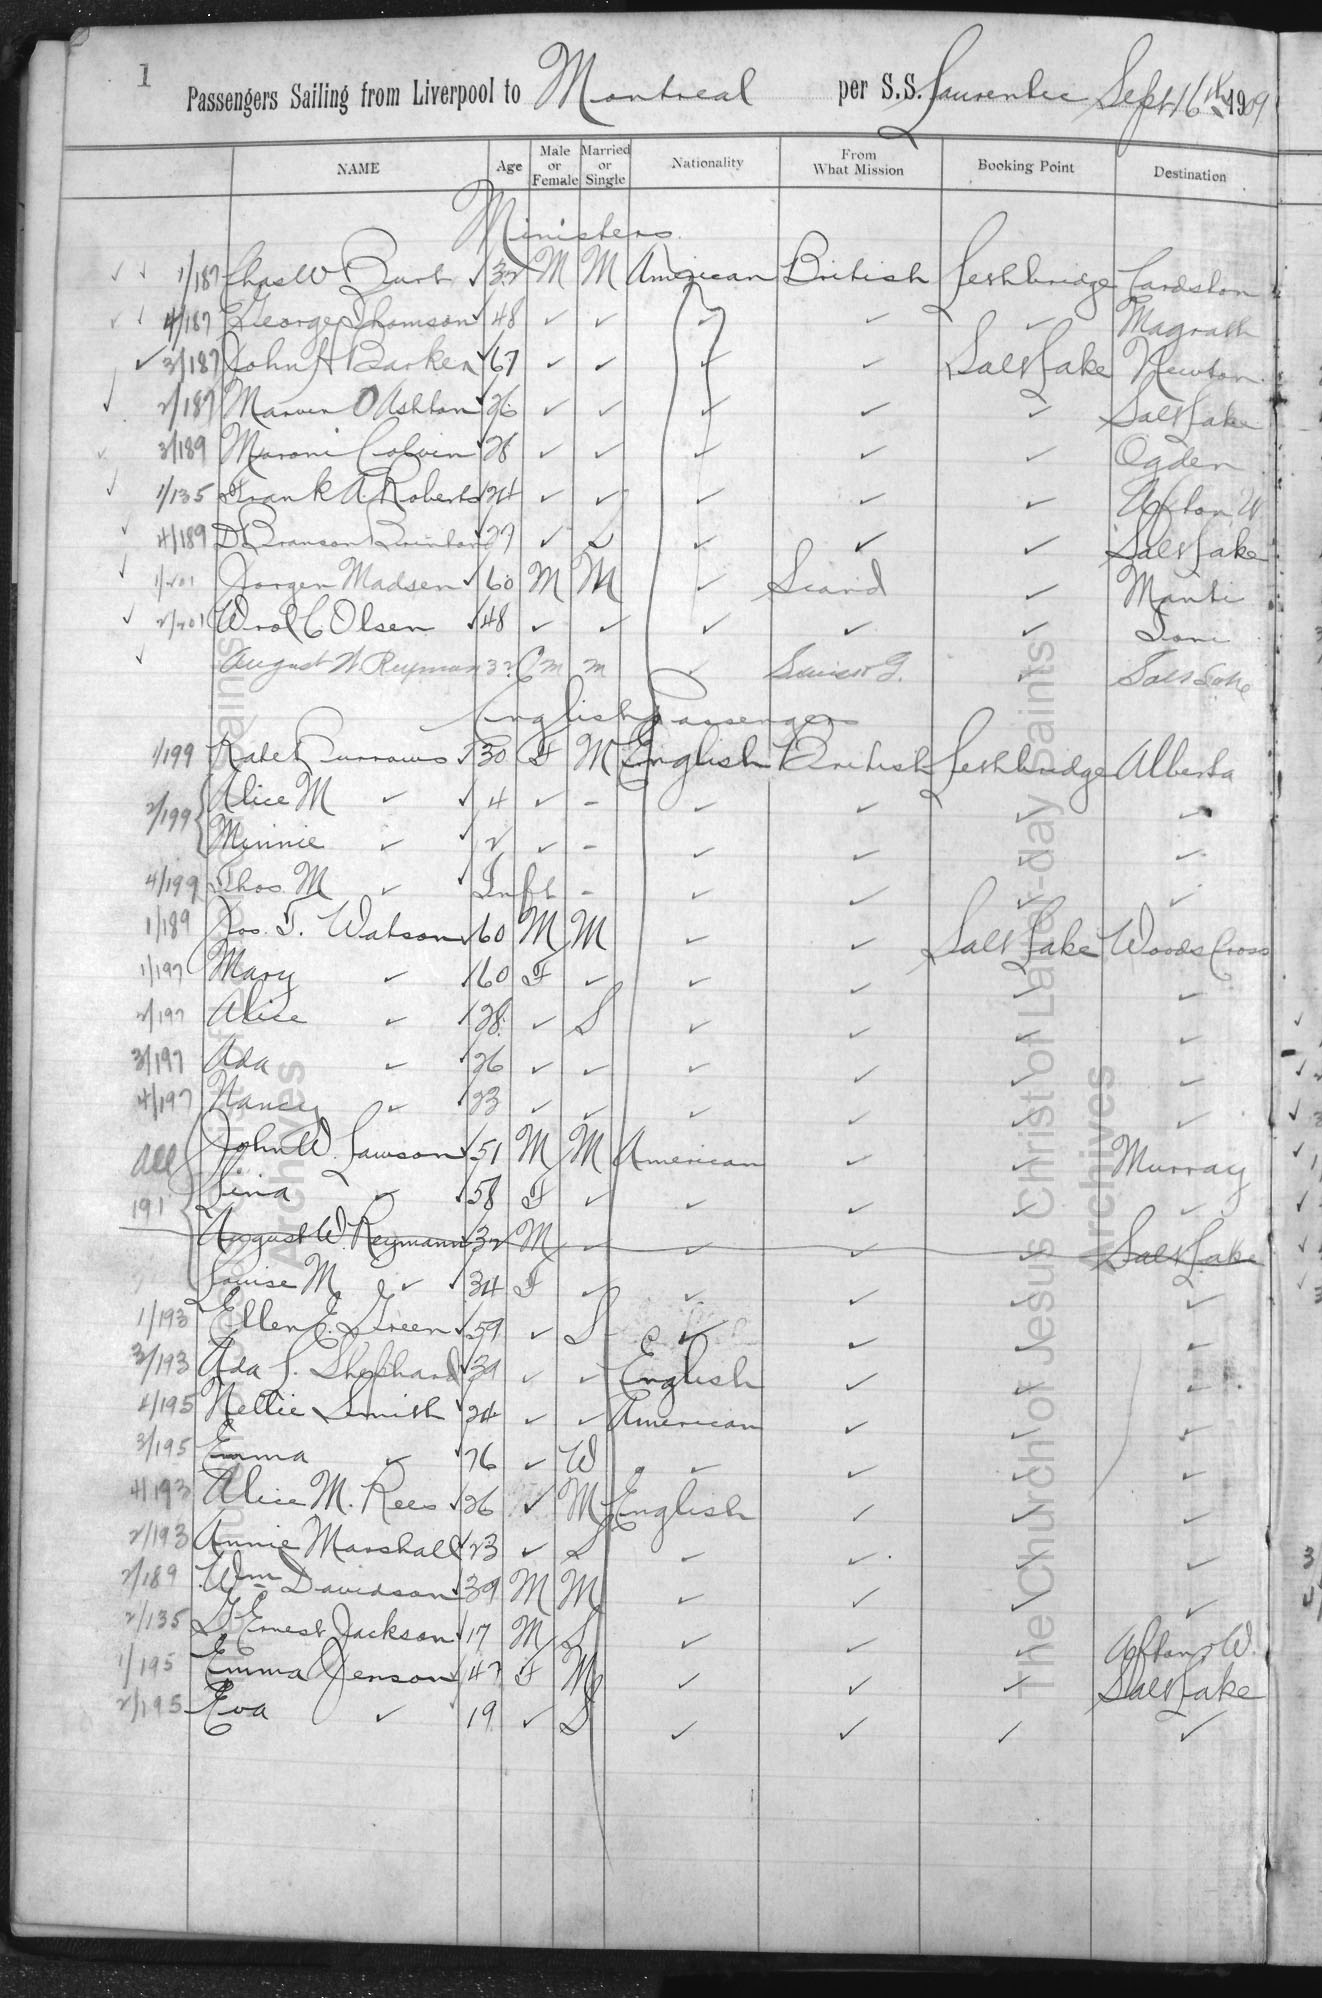 1
Passengers Sailing from Liverpool to Montreal per S.S. Laurentic Sept 16th 1909
NAME Age Male or Female Married or Single Nationality From What Mission Booking Point Destination
Ministers
✓ ✓ 1/187 Chas W Burt ✓ 32 M M American British Lethbridge Cardston
✓ ✓ 4/187 George Thomson ✓ 48 ✓ ✓ ✓ ✓ ✓ Magrath
✓ 3/187 John H Barker ✓ 67 ✓ ✓ ✓ ✓ Salt Lake Newton
✓ 2/187 Marvin O Ashton ✓ 26 ✓ ✓ ✓ ✓ ✓ Salt Lake
✓ 3/189 Moroni Colvin ✓ 28 ✓ ✓ ✓ ✓ ✓ Ogden
✓ 1/135 Frank A. Roberts ✓ 24 ✓ ✓ ✓ ✓ ✓ Afton W
✓ 4/189 D Branson Brinton 27 ✓ S ✓ ✓ ✓ Salt Lake
✓ 1/201 Jorgen Madsen ✓ 60 M M ✓ Scand ✓ Manti
✓ 2/201 C Olsen ✓ 48 ✓ ✓ ✓ ✓ ✓
✓ August W Reymann 32 M M ✓ Swiss G. ✓ Salt Lake
English Passengers
1/199 Kate Burrows ✓ 30 F M English British Lethbridge Alberta
2/199 { Alice M ✓ ✓ 4 ✓ – ✓ ✓ ✓ ✓
Minnie ✓ ✓ 2 ✓ – ✓ ✓ ✓ ✓
4/199 Thos. M ✓ ✓ Inft – ✓ ✓ ✓ ✓
1/189 Jos. T. Watson ✓ 60 M M ✓ ✓ Salt Lake Woods Cross
1/197 Mary ✓ ✓ 60 F ✓ ✓ ✓ ✓ ✓
2/197 Alice ✓ ✓ 28 ✓ S ✓ ✓ ✓ ✓
3/197 Ada ✓ ✓ 26 ✓ ✓ ✓ ✓ ✓ ✓
4/197 Nancy ✓ ✓ 23 ✓ ✓ ✓ ✓ ✓ ✓
All John W. Lawson ✓ 51 M M American ✓ ✓ Murray
191 Sina ✓ ✓ 58 F ✓ ✓ ✓ ✓ ✓
August W. Reymann ✓ 32 M ✓ ✓ ✓ ✓ Salt Lake
Louise M ✓ ✓ 34 F ✓ ✓ ✓ ✓ ✓
1/193 Ellen E. Green ✓ 59 ✓ S ✓ ✓ ✓ ✓
3/193 Ada L. Shephard ✓ 39 ✓ ✓ English ✓ ✓ ✓
4/195 Nellie Smith ✓ 24 ✓ ✓ American ✓ ✓ ✓
3/195 Emma ✓ ✓ 76 ✓ W ✓ ✓ ✓ ✓
4/193 Alice M. Rees ✓ 26 ✓ M English ✓ ✓ ✓
2/193 Annie Marshall ✓ 23 ✓ S ✓ ✓ ✓ ✓
2/189 Wm Davidson ✓ 39 M M ✓ ✓ ✓ ✓
2/135 G Ernest Jackson ✓ 17 M S ✓ ✓ ✓ Afton W.
1/195 Emma Jenson ✓ 47 F M ✓ ✓ ✓ Salt Lake
2/195 Eva ✓ 19 ✓ S ✓ ✓ ✓ ✓
The Church of Jesus Christ of Latter-day Saints
Archives